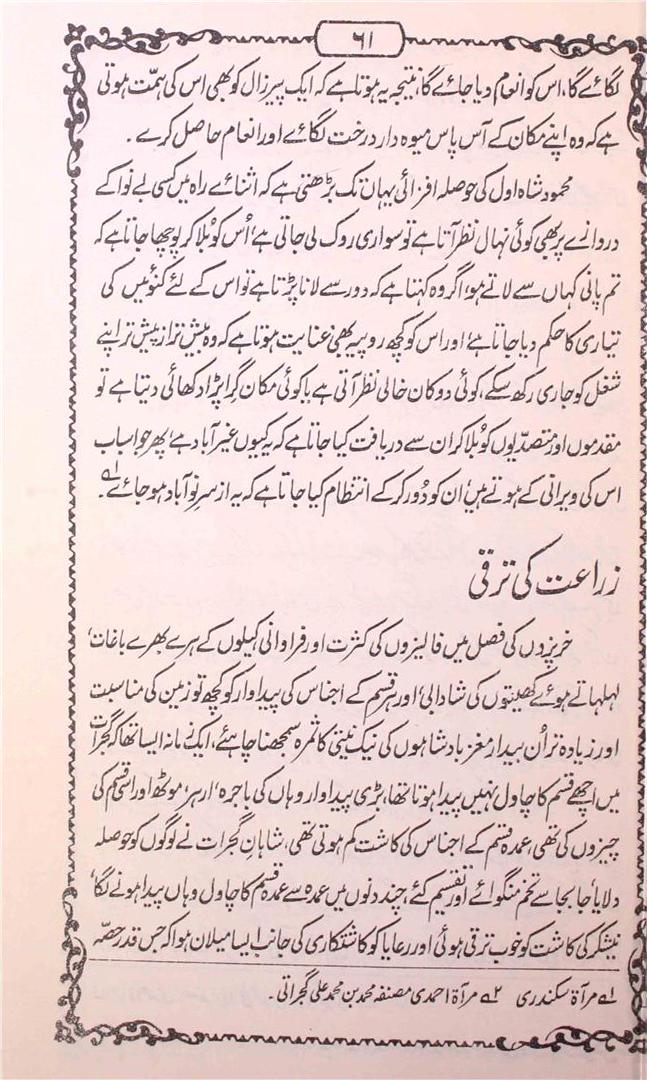 ۶۱
لگائے گا، اس کو انعام دیا جائے گا، نتیجہ یہ ہوتا ہے کہ ایک پیرزال کو بھی اس کی ہمّت ہوتی
ہے کہ وہ اپنے مکان کے آس پاس میوہ دار درخت لگائے اور انعام حاصل کرے ۔
محمود شاہ اول کی حوصلہ افزائی یہاں تک بڑھتی ہے کہ اثنائے راہ میں کسی بے نوا کے
دروازے پر بھی کوئی نہال نظر آتا ہے تو سواری روک لی جاتی ہے، اُس کو بلا کر پوچھا جاتا ہے کہ
تم پانی کہاں سے لاتے ہو، اگر وہ کہتا ہے کہ دور سے لانا پڑتا ہے تو اس کے لئے کنوئیں کی
تیاری کا حکم دیا جاتا ہے، اور اس کو کچھ روپیہ بھی عنایت ہوتا ہے کہ وہ بیش تر از پیش تر اپنے
شغل کو جاری رکھ سکے، کوئی دوکان خالی نظر آتی ہے یا کوئی مکان گرا پڑا دکھائی دیتا ہے تو
مقدموں اور متصدّیوں کو بُلا کر ان سے دریافت کیا جاتا ہے کہ یہ کیوں غیر آباد ہے، پھر جو اسباب
اس کی ویرانی کے ہوتے ہیں، ان کو دُور کر کے انتظام کیا جاتا ہے کہ یہ از سرِ نو آباد ہو جائے ۱؎۔
زراعت کی ترقی
خربزوں کی فصل میں فالیزوں کی کثرت اور فراوانی کیلوں کے ہرے بھرے باغات،
لہلہاتے ہوئے کھیتوں کی شادابی، اور ہر قسم کے اجناس کی پیداوار کو کچھ تو زمین کی مناسبت
اور زیادہ تر اُن بیدار مغز بادشاہوں کی نیک نیتی کا ثمرہ سمجھنا چاہئے، ایک زمانہ ایسا تھا کہ گجرات
میں اچھے قسم کا چاول نہیں پیدا ہوتا تھا، بڑی پیداوار وہاں کی باجرہ، ارہر، موٹھ اور اسی قسم کی
چیزوں کی تھی، عمدہ قسم کے اجناس کی کاشت کم ہوتی تھی، شاہانِ گجرات نے لوگوں کو حوصلہ
دلایا، جا بجا سے تخم منگوائے اور تقسیم کئے، چند دنوں میں عمدہ سے عمدہ قسم کا چاول وہاں پیدا ہونے لگا،
نیشکر کی کاشت کو خوب ترقی ہوئی اور رعایا کو کاشتکاری کی جانب ایسا میلان ہوا کہ جس قدر حصّہ
۱؎ مرآۃ سکندری ۲؎ مرآۃ احمدی مصنفہ محمد بن محمد علی گجراتی ۔